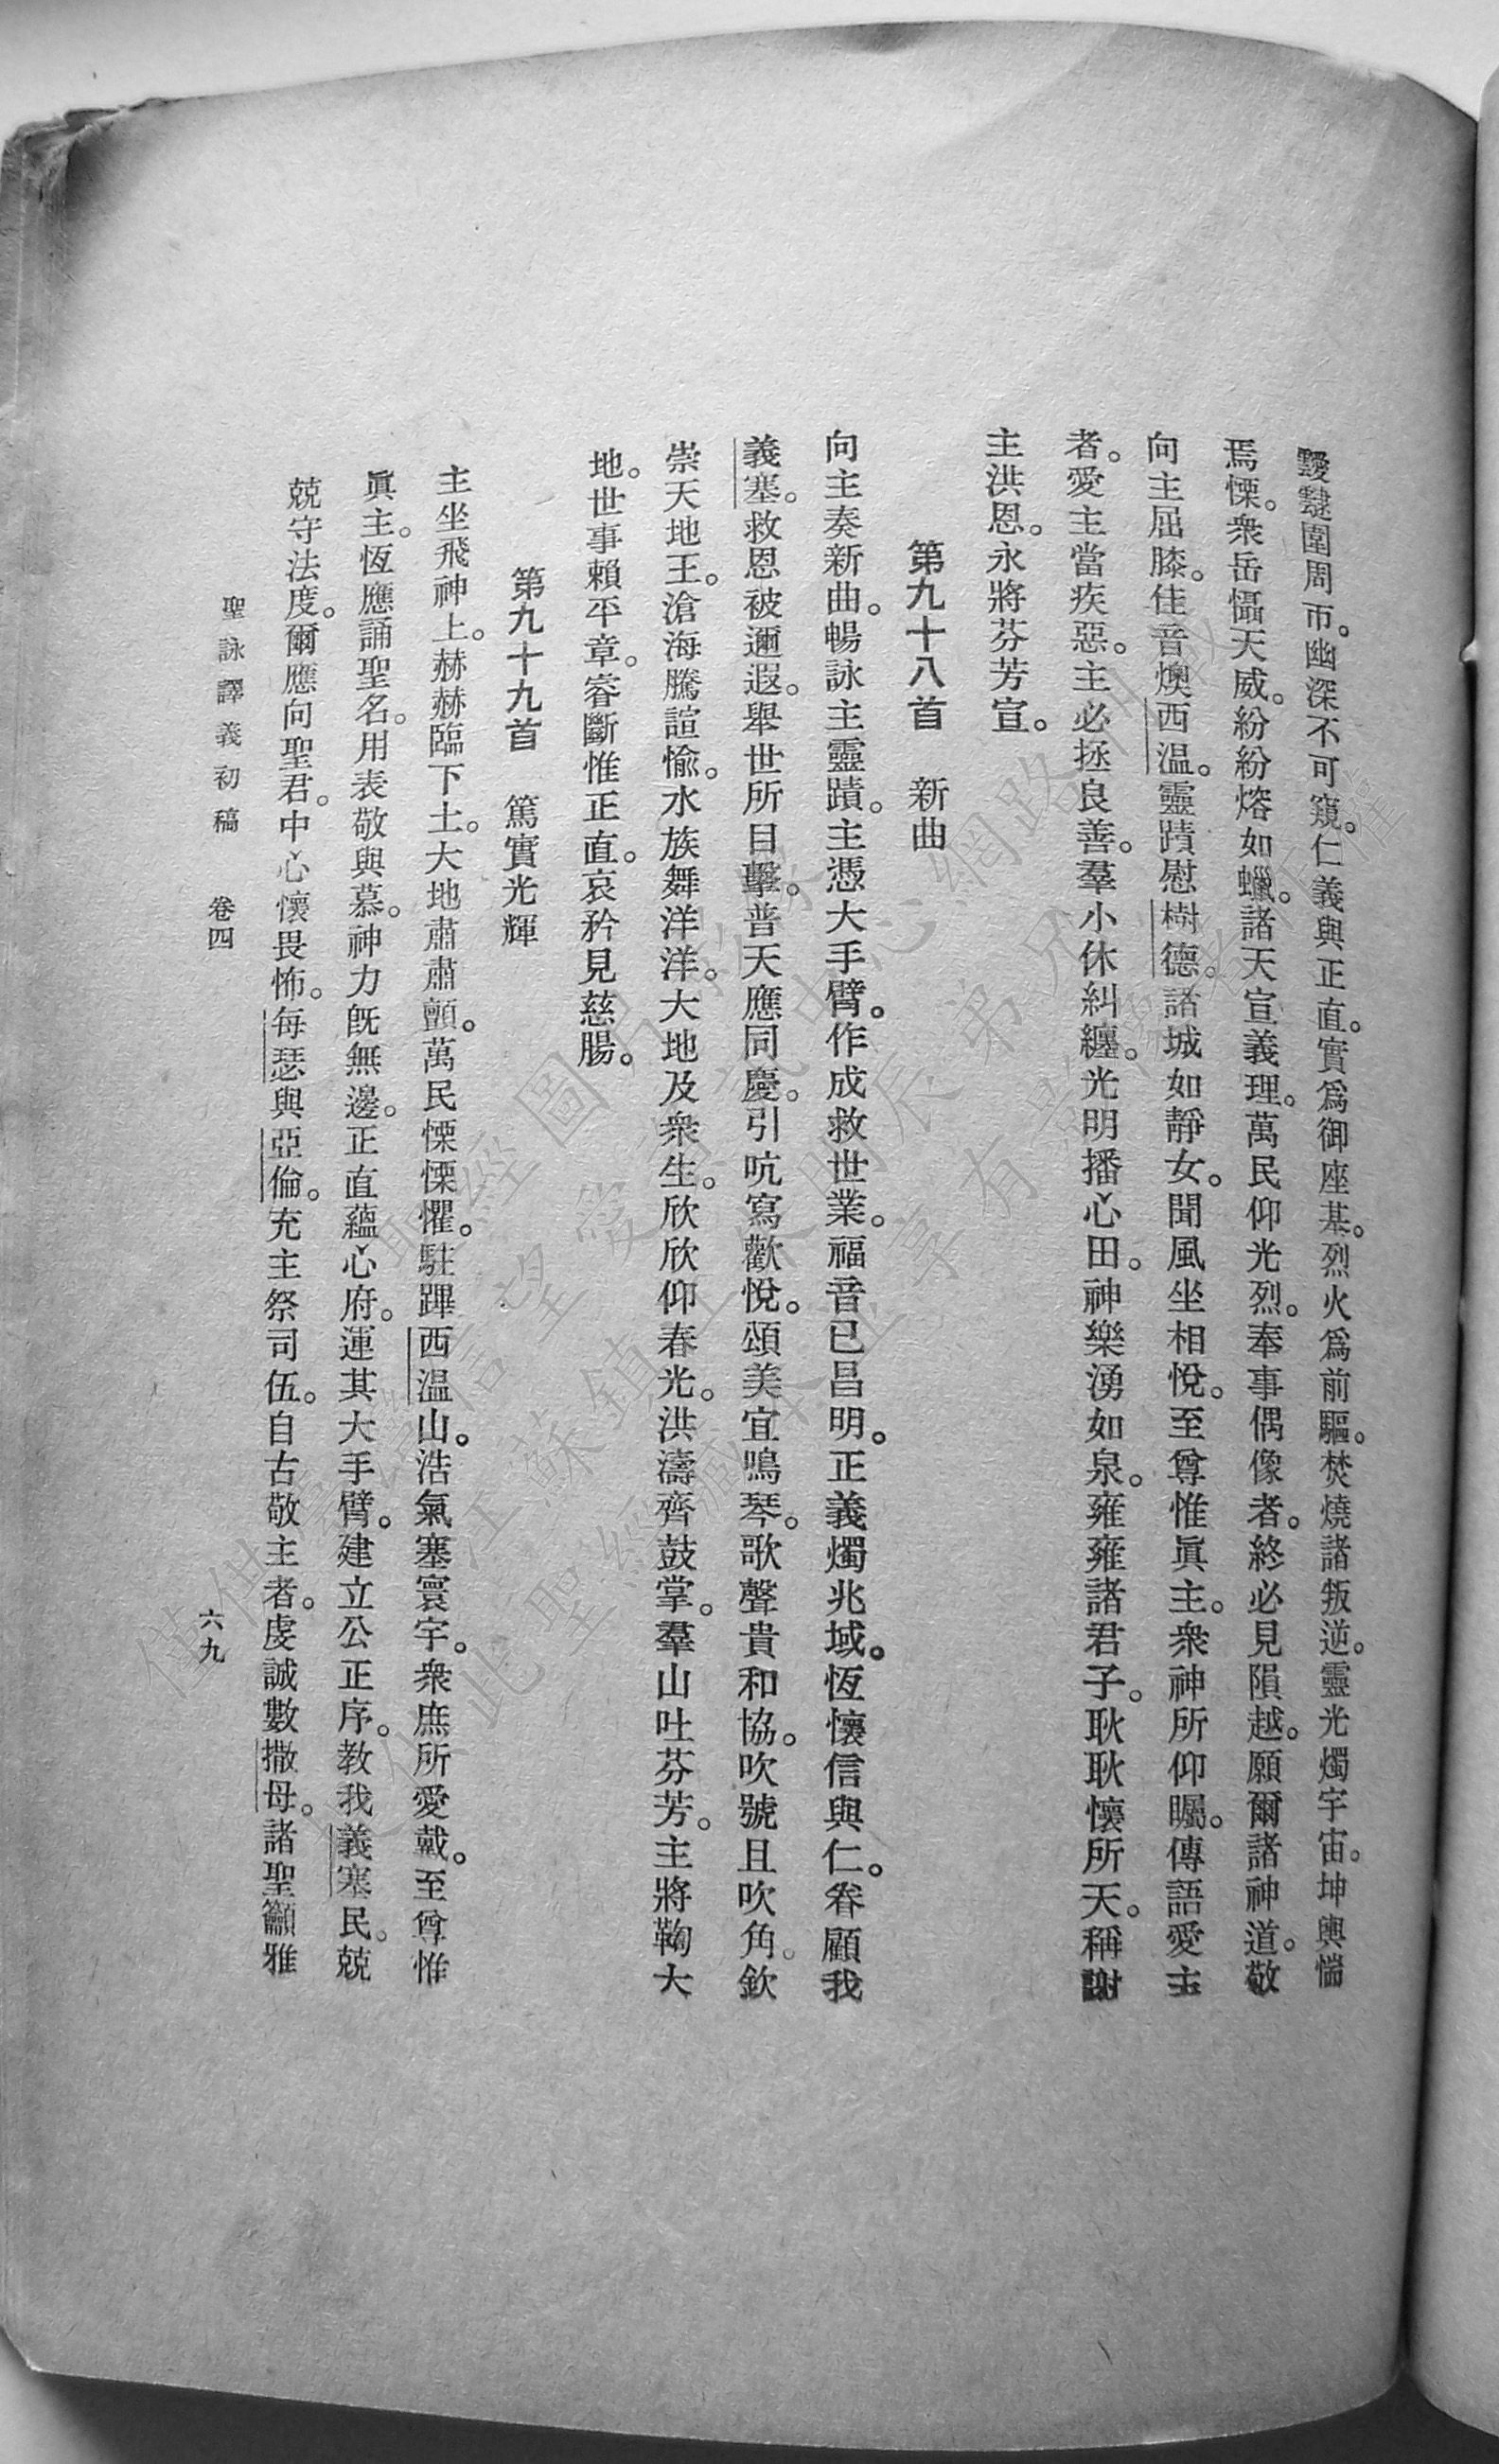 靉靆圍周帀。幽深不可窺。仁義與正直。實爲御座基。烈火爲前驅。焚燒諸叛逆。靈光燭宇宙。坤輿惴
焉慄。衆岳懾天威。紛紛熔如蠟。諸天宣義理。萬民仰光烈。奉事偶像者。終必見隕越。願爾諸神道。敬
向主屈膝。佳音煥西温。靈蹟慰樹德。諸城如靜女。聞風坐相悅。至尊惟眞主。衆神所仰矚。傳語愛主
者。愛主當疾惡。主必拯良善。羣小休糾纏。光明播心田。神樂湧如泉。雍雍諸君子。耿耿懷所天。稱謝
主洪恩。永將芬芳宣。
第九十八首 新曲
向主奏新曲。暢詠主靈蹟。主憑大手臂。作成救世業。福音已昌明。正義燭兆域。恆懷信與仁。眷顧我
義塞。救恩被邇遐。舉世所目擊。普天應同慶。引吭寫歡悅。頌美宜鳴琴。歌聲貴和協。吹號且吹角。欽
崇天地王。滄海騰諠愉。水族舞洋洋。大地及衆生。欣欣仰春光。洪濤齊鼓掌。羣山吐芬芳。主將鞫大
地。世事賴平章。睿斷惟正直。哀矜見慈腸。
第九十九首 篤實光輝
主坐飛神上。赫赫臨下土。大地肅肅顫。萬民慄慄懼。駐蹕西温山。浩氣塞寰宇。衆庶所愛戴。至尊惟
眞主。恆應誦聖名。用表敬與慕。神力旣無邊。正直蘊心府。運其大手臂。建立公正序。教我義塞民。兢
兢守法度。爾應向聖君。中心懷畏怖。每瑟與亞倫。充主祭司伍。自古敬主者。虔誠數撒母。諸聖籲雅
聖詠譯義初稿 卷四 六九